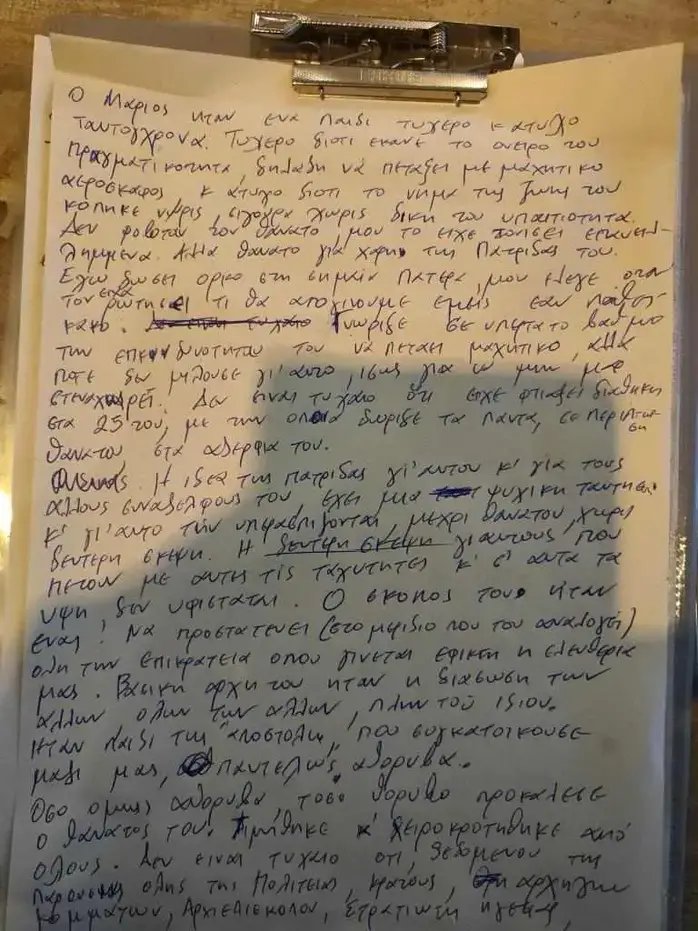 Ο Μαριος ηταν ενα παιδι τυχερο κ ατυχο
ταυτοχρονα. Τυχερο διοτι εκανε το ονειρο του
πραγματικοτητα, δηλαδη να πεταξει με μαχητικο
αεροσκαφος κ ατυχο διοτι το νημα της ζωης του
κοπηκε νωρις, σιγουρα χωρις δικη του υπαιτιοτητα.
Δεν φοβοταν τον θανατο, μου το ειχε τονισει επανει-
λημμενα. Αλλα θανατο για χαρη της Πατριδας του.
Εχω δωσει ορκο στη σημαια Πατερα, μου ελεγε οταν
τον ειχα ρωτησει τι θα απογινουμε εμεις εαν παθεις
κακο. Γνωριζε σε υπερτατο βαθμο
την επικινδυνοτητα του να πεταει μαχητικο, αλλα
ποτε δεν μιλουσε γι'αυτο, ισως για να μην μας
στεναχωρει. Δεν ειναι τυχαιο οτι ειχε φτιαξει διαθηκη
στα 25 του, με την οποια δωριζε τα παντα, σε περιπτω-
ση
θανατου στα αδερφια του.
Η ιδεα της πατριδας γι'αυτον κ' για τους
αλλους συναδελφους του, εχει μια ψυχικη ταυτηση
κ' γι'αυτο την υπερασπιζονται, μεχρι θανατου, χωρις
δευτερη σκεψη. Η δευτερη σκεψη γι αυτους που
πετουν με αυτες τις ταχυτητες κ' σ' αυτα τα
υψη, δεν υφισταται. Ο σκοπος του ηταν
ενας! Να προστατευει (στο μεριδιο που του αναλογει)
ολη την επικρατεια οπου γινεται εφικτη η ελευθερια
μας. Βασικη αρχη του ηταν η διασωση των
αλλων ολων των αλλων, πλην του ιδιου.
Ηταν παιδι της αποστολης, που συγκατοικουσε
μαζι μας, παντελως αθορυβα.
Οσο ομως αθορυβα, τοσο θορυβο προκαλεσε
ο θανατος του. Τιμηθηκε κ' χειροκροτηθηκε απο
ολους. Δεν ειναι τυχαιο οτι, δεδομενου της
παρουσιας ολης της Πολιτειας, κρατους, αρχηγων
κομματων, Αρχιεπισκοπου, Στρατιωτικη ηγεσιας,